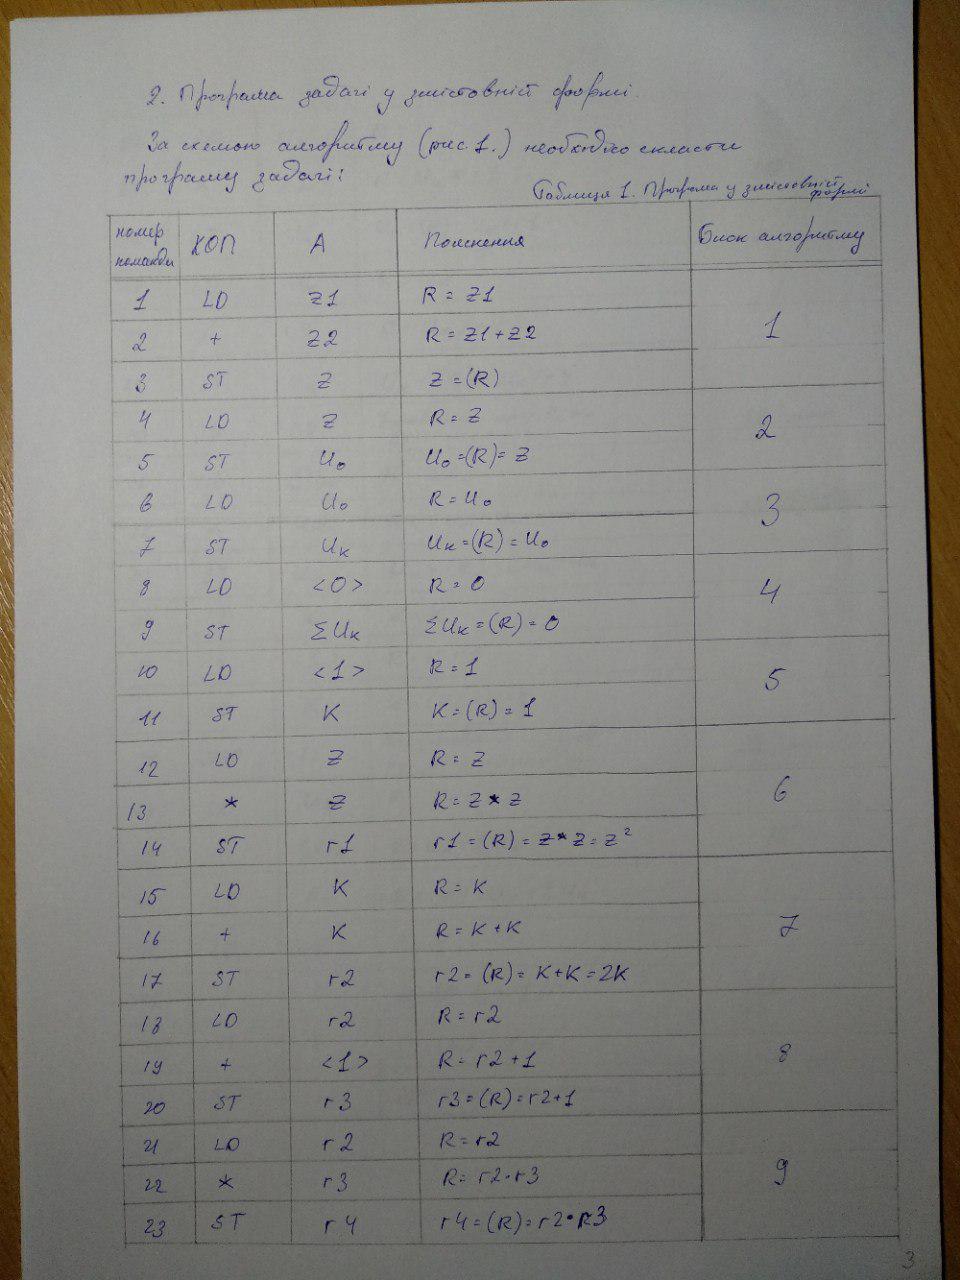 2. Програма задачі у змістовній формі.
За схемою алгоритму (рис.1.) необхідно скласти
програму задачі:
Таблиця 1. Програма у змістовній
формі
номер команди КОП А Пояснення Блок алгоритму
1 LD Z1 R = Z1 1
2 + Z2 R = Z1+Z2
3 ST Z Z =(R)
4 LD Z R = Z 2
5 ST U₀ U₀ =(R)= Z
6 LD U₀ R = U₀ 3
7 ST Uк Uк =(R) = U₀
8 LD <0> R = 0 4
9 ST ΣUк ΣUк =(R) = 0
10 LD <1> R = 1 5
11 ST K K = (R) = 1
12 LD Z R = Z 6
13 * Z R = Z * Z
14 ST r1 r1 = (R) = Z*Z = Z²
15 LD K R = K 7
16 + K R = K + K
17 ST r2 r2 = (R) = K+K =2K
18 LD r2 R = r2 8
19 + <1> R = r2 +1
20 ST r3 r3 = (R) = r2+1
21 LD r2 R = r2 9
22 * r3 R = r2·r3
23 ST r4 r4 = (R) = r2·R3
3